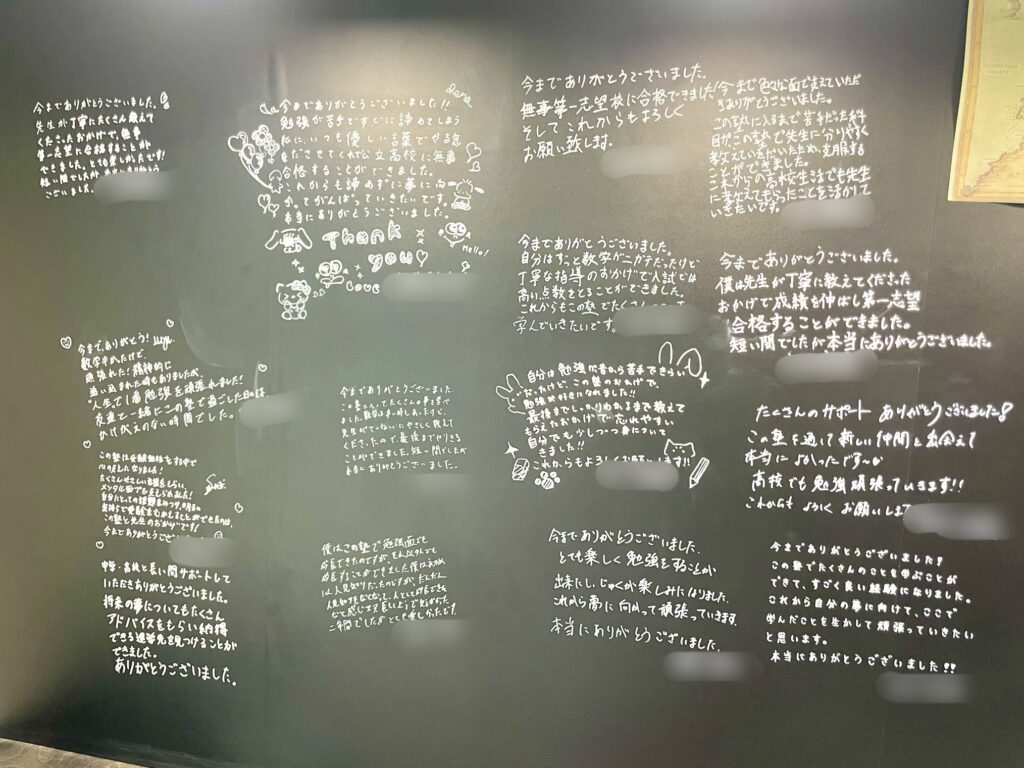 今までありがとうございました。
先生が丁寧にたくさん教えて
くださったおかげで、無事
第一志望に合格することが
できました。
ございました
今までありがとうございました!!
勉強が苦手ですぐに諦めてしまう
私に、いつも優しい言葉でやる気
をださせてくれて公立高校に無事
合格することができました。
これからも諦めずに夢に向
かってがんばっていきたいです。
本当にありがとうございました。
Thank
you
Love
Hello!
今までありがとうございました。
無事第一志望校に合格できました
そしてこれからもよろしく
お願い致します。
今まで色々な面で支えていただ
きありがとうございました。
この塾に入るまで苦手だった科
目がこの塾で先生に分りやすく
教えていただいたため克服する
ことができました。
これからの高校生活でも先生
に教えてもらったことを活かして
いきたいです。
今までありがとうございました。
自分はずっと数学がニガテだったけど
丁寧な指導のおかげで入試では
高い点数をとることができました。
これからもこの塾でたくさん
学んでいきたいです。
今までありがとうございました。
僕は先生が丁寧に教えてくださった
おかげで成績も伸ばし第一志望
合格することができました。
短い間でしたが本当にありがとうございました。
今まで、ありがとう!
数学きらいだけど、
頑張れた!精神的に
追い込まれた時もありましたが、
人生で1番勉強を頑張れました!
友達と一緒にこの塾で過ごした日々は
かけがえのない時間でした。
今までありがとうございました
この塾に入ってたくさんの事を学べ
ました。
先生がていねいにやさしく教えて
くださったので最後までやりきる
ことができました。短い間でしたが
本当にありがとうございました。
自分は勉強が昔から苦手できらい
だったけど、この塾のおかげで、
勉強が好きになれました!!
最後までしっかりわかるまで教えて
もらえたおかげで忘れやすい
自分でも少しづつ身についてき
きました!!
これからもよろしくお願いします!!
たくさんのサポート ありがとうございました!
この塾を通して新しい仲間と出会えて
本当に よかったです〜
高校でも 勉強頑張っていきます!!
これからも よろしく お願いします
たくさんやさしい言葉をもらい、
この塾と先生のおかげです!
今までありがとうござ
中学・高校と長い間サポートして
いただきありがとうございました。
将来の夢についてもたくさん
アドバイスをもらい納得
できる進学先を見つけることが
できました。
ありがとうございました。
僕はこの塾で勉強面でも
成長できたのですが、それ以外でも
成長することができました。僕は元々
は人見知りだったのですが、だんだん
今までありがとうございました、
とても楽しく勉強をすることが
出来たし、じゅくが楽しみになりました。
これから夢に向かって頑張っていきます。
本当にありがとうございました、
今までありがとうございました!
この塾でたくさんのことを学ぶことが
できて、すごく良い経験になりました。
これから自分の夢に向けて、ここで
学んだことを生かして頑張っていきたい
と思います。
本当にありがとうございました!!